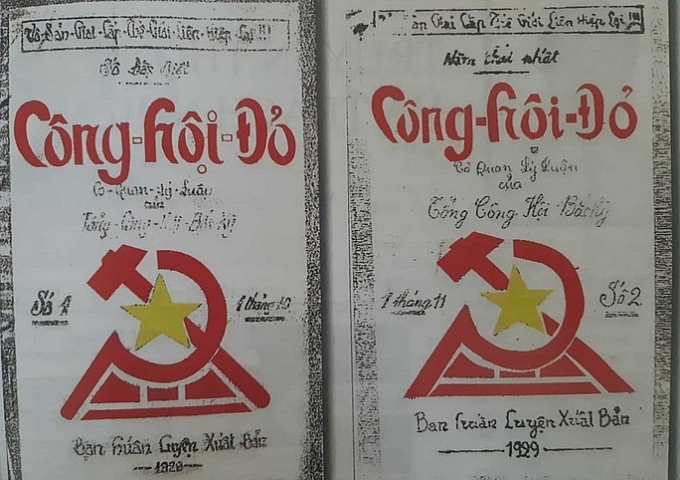 Vô-Sản-Giai-Cấp-Thế-Giới-Liên-Hiệp-Lại!!!
Số Đặc Biệt
Công-Hội-Đỏ
Cơ-Quan-Lý-Luận
của
Tổng-Công-Hội-Bắc Kỳ
Số 1
1 tháng 10
Ban Huấn Luyện Xuất Bản
1929
ản Giai Cấp Thế Giới Liên Hiệp Lại !!!
Năm thứ nhất
Công-Hội-Đỏ
Cơ Quan Lý Luận
của
Tổng Công Hội Bắc Kỳ
1 tháng 11
Số 2
Ban Huấn Luyện Xuất Bản
1929